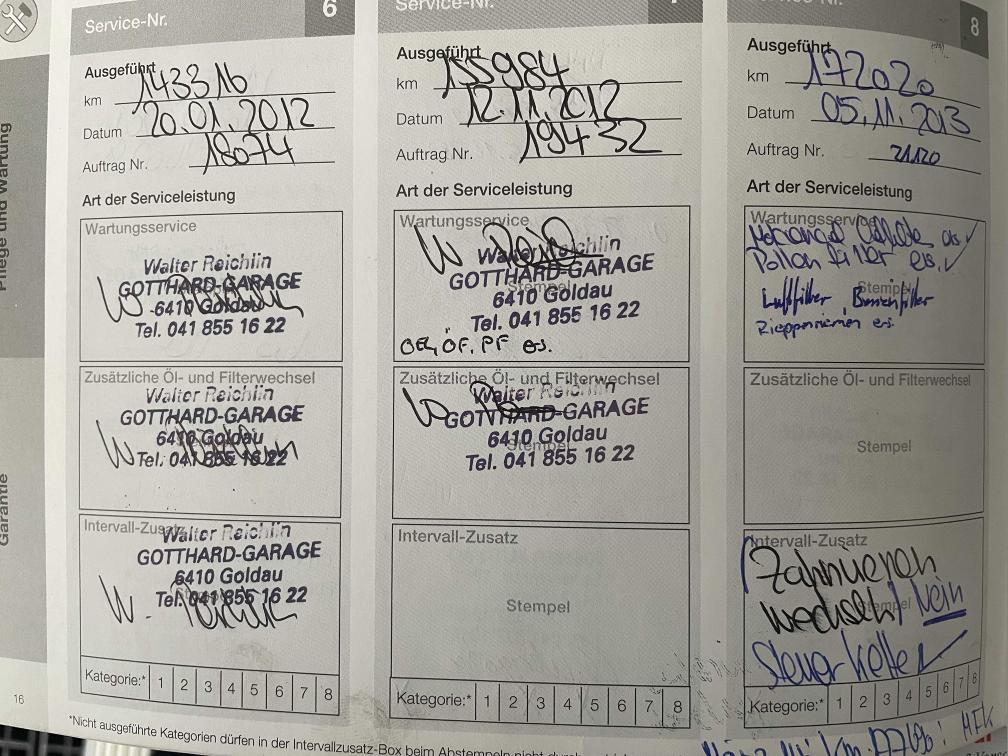 Service-Nr. 6
Ausgeführt
km 143316
Datum 20.01.2012
Auftrag Nr. 18074
Art der Serviceleistung
Wartungsservice
Walter Reichlin
GOTTHARD-GARAGE
6410 Goldau
Tel. 041 855 16 22
Zusätzliche Öl- und Filterwechsel
Walter Reichlin
GOTTHARD-GARAGE
6410 Goldau
Tel. 041 855 16 22
Intervall-Zusatz
Walter Reichlin
GOTTHARD-GARAGE
6410 Goldau
Tel. 041 855 16 22
Kategorie:* 1 2 3 4 5 6 7 8
Service-Nr.
Ausgeführt
km 155984
Datum 12.11.2012
Auftrag Nr. 19432
Art der Serviceleistung
Wartungsservice
Walter Reichlin
GOTTHARD-GARAGE
Stempel
6410 Goldau
Tel. 041 855 16 22
OEL, ÖF, PF ers.
Zusätzliche Öl- und Filterwechsel
Walter Reichlin
GOTTHARD-GARAGE
6410 Goldau
Stempel
Tel. 041 855 16 22
Intervall-Zusatz
Stempel
Kategorie:* 1 2 3 4 5 6 7 8
8
Ausgeführt
km 172020
Datum 05.11.2013
Auftrag Nr. 21120
Art der Serviceleistung
Wartungsservice
Pollen filter ers. ✓
Stempel
Luftfilter, Innenfilter
ers.
Zusätzliche Öl- und Filterwechsel
Stempel
Intervall-Zusatz
Zahnriemen
wechseln / Nein
Stempel
Steuerkette ✓
Kategorie:* 1 2 3 4 5 6 7 8
16
*Nicht ausgeführte Kategorien dürfen in der Intervallzusatz-Box beim Abstempeln nicht
Pflege und Wartung
Garantie